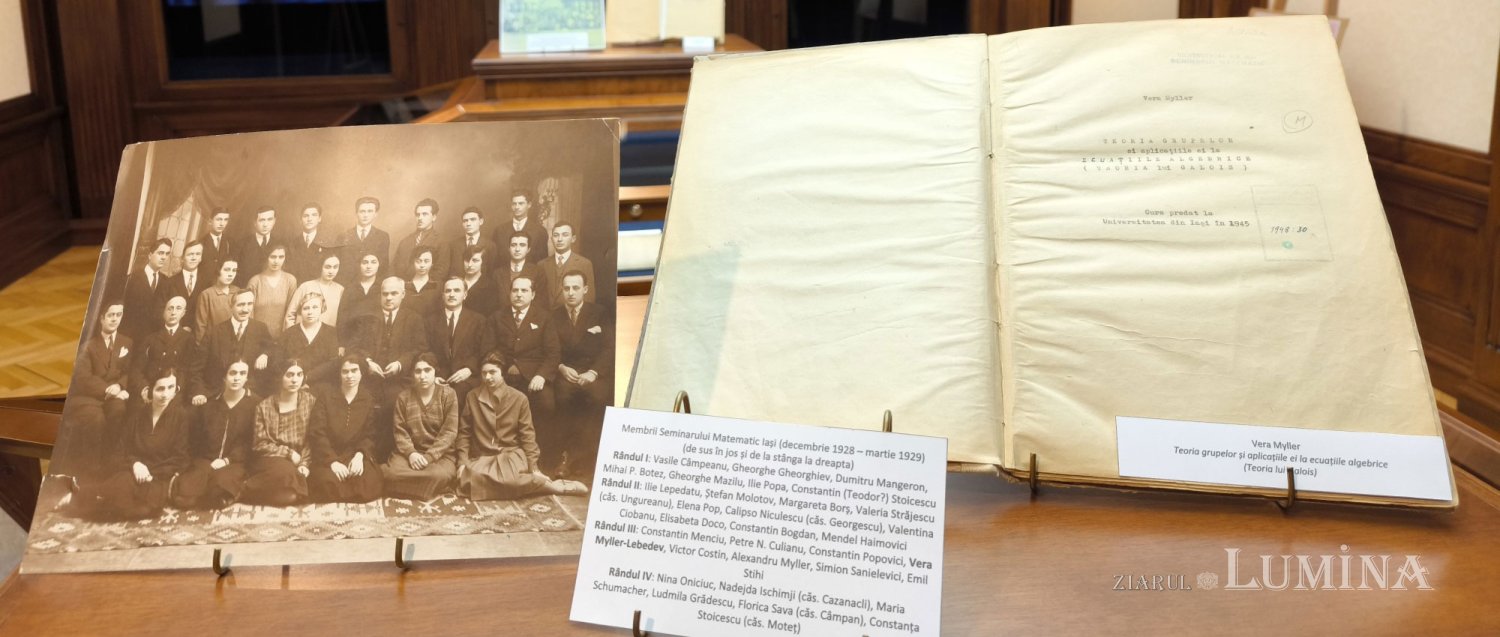 Vera Myller
TEORIA GRUPELOR
si aplicațiile ei la
ECUAȚIILE ALGEBRICE
( TEORIA lui GALOIS )
M
Curs predat la
Universitatea din Iași în 1945
1948 : 30
Membrii Seminarului Matematic Iași (decembrie 1928 – martie 1929)
(de sus în jos și de la stânga la dreapta)
Rândul I: Vasile Câmpeanu, Gheorghe Gheorghiev, Dumitru Mangeron,
Mihai P. Botez, Gheorghe Mazilu, Ilie Popa, Constantin (Teodor?) Stoicescu
Rândul II: Ilie Lepedatu, Ștefan Molotov, Margareta Borș, Valeria Străjescu
(căs. Ungureanu), Elena Pop, Calipso Niculescu (căs. Georgescu), Valentina
Ciobanu, Elisabeta Doco, Constantin Bogdan, Mendel Haimovici
Rândul III: Constantin Menciu, Petre N. Culianu, Constantin Popovici, Vera
Myller-Lebedev, Victor Costin, Alexandru Myller, Simion Sanielevici, Emil
Stihi
Rândul IV: Nina Oniciuc, Nadejda Ischimji (căs. Cazanacli), Maria
Schumacher, Ludmila Grădescu, Florica Sava (căs. Câmpan), Constanța
Stoicescu (căs. Moteț)
Vera Myller
Teoria grupelor și aplicațiile ei la ecuațiile algebrice
(Teoria lui Galois)
ZIARUL LUMINA